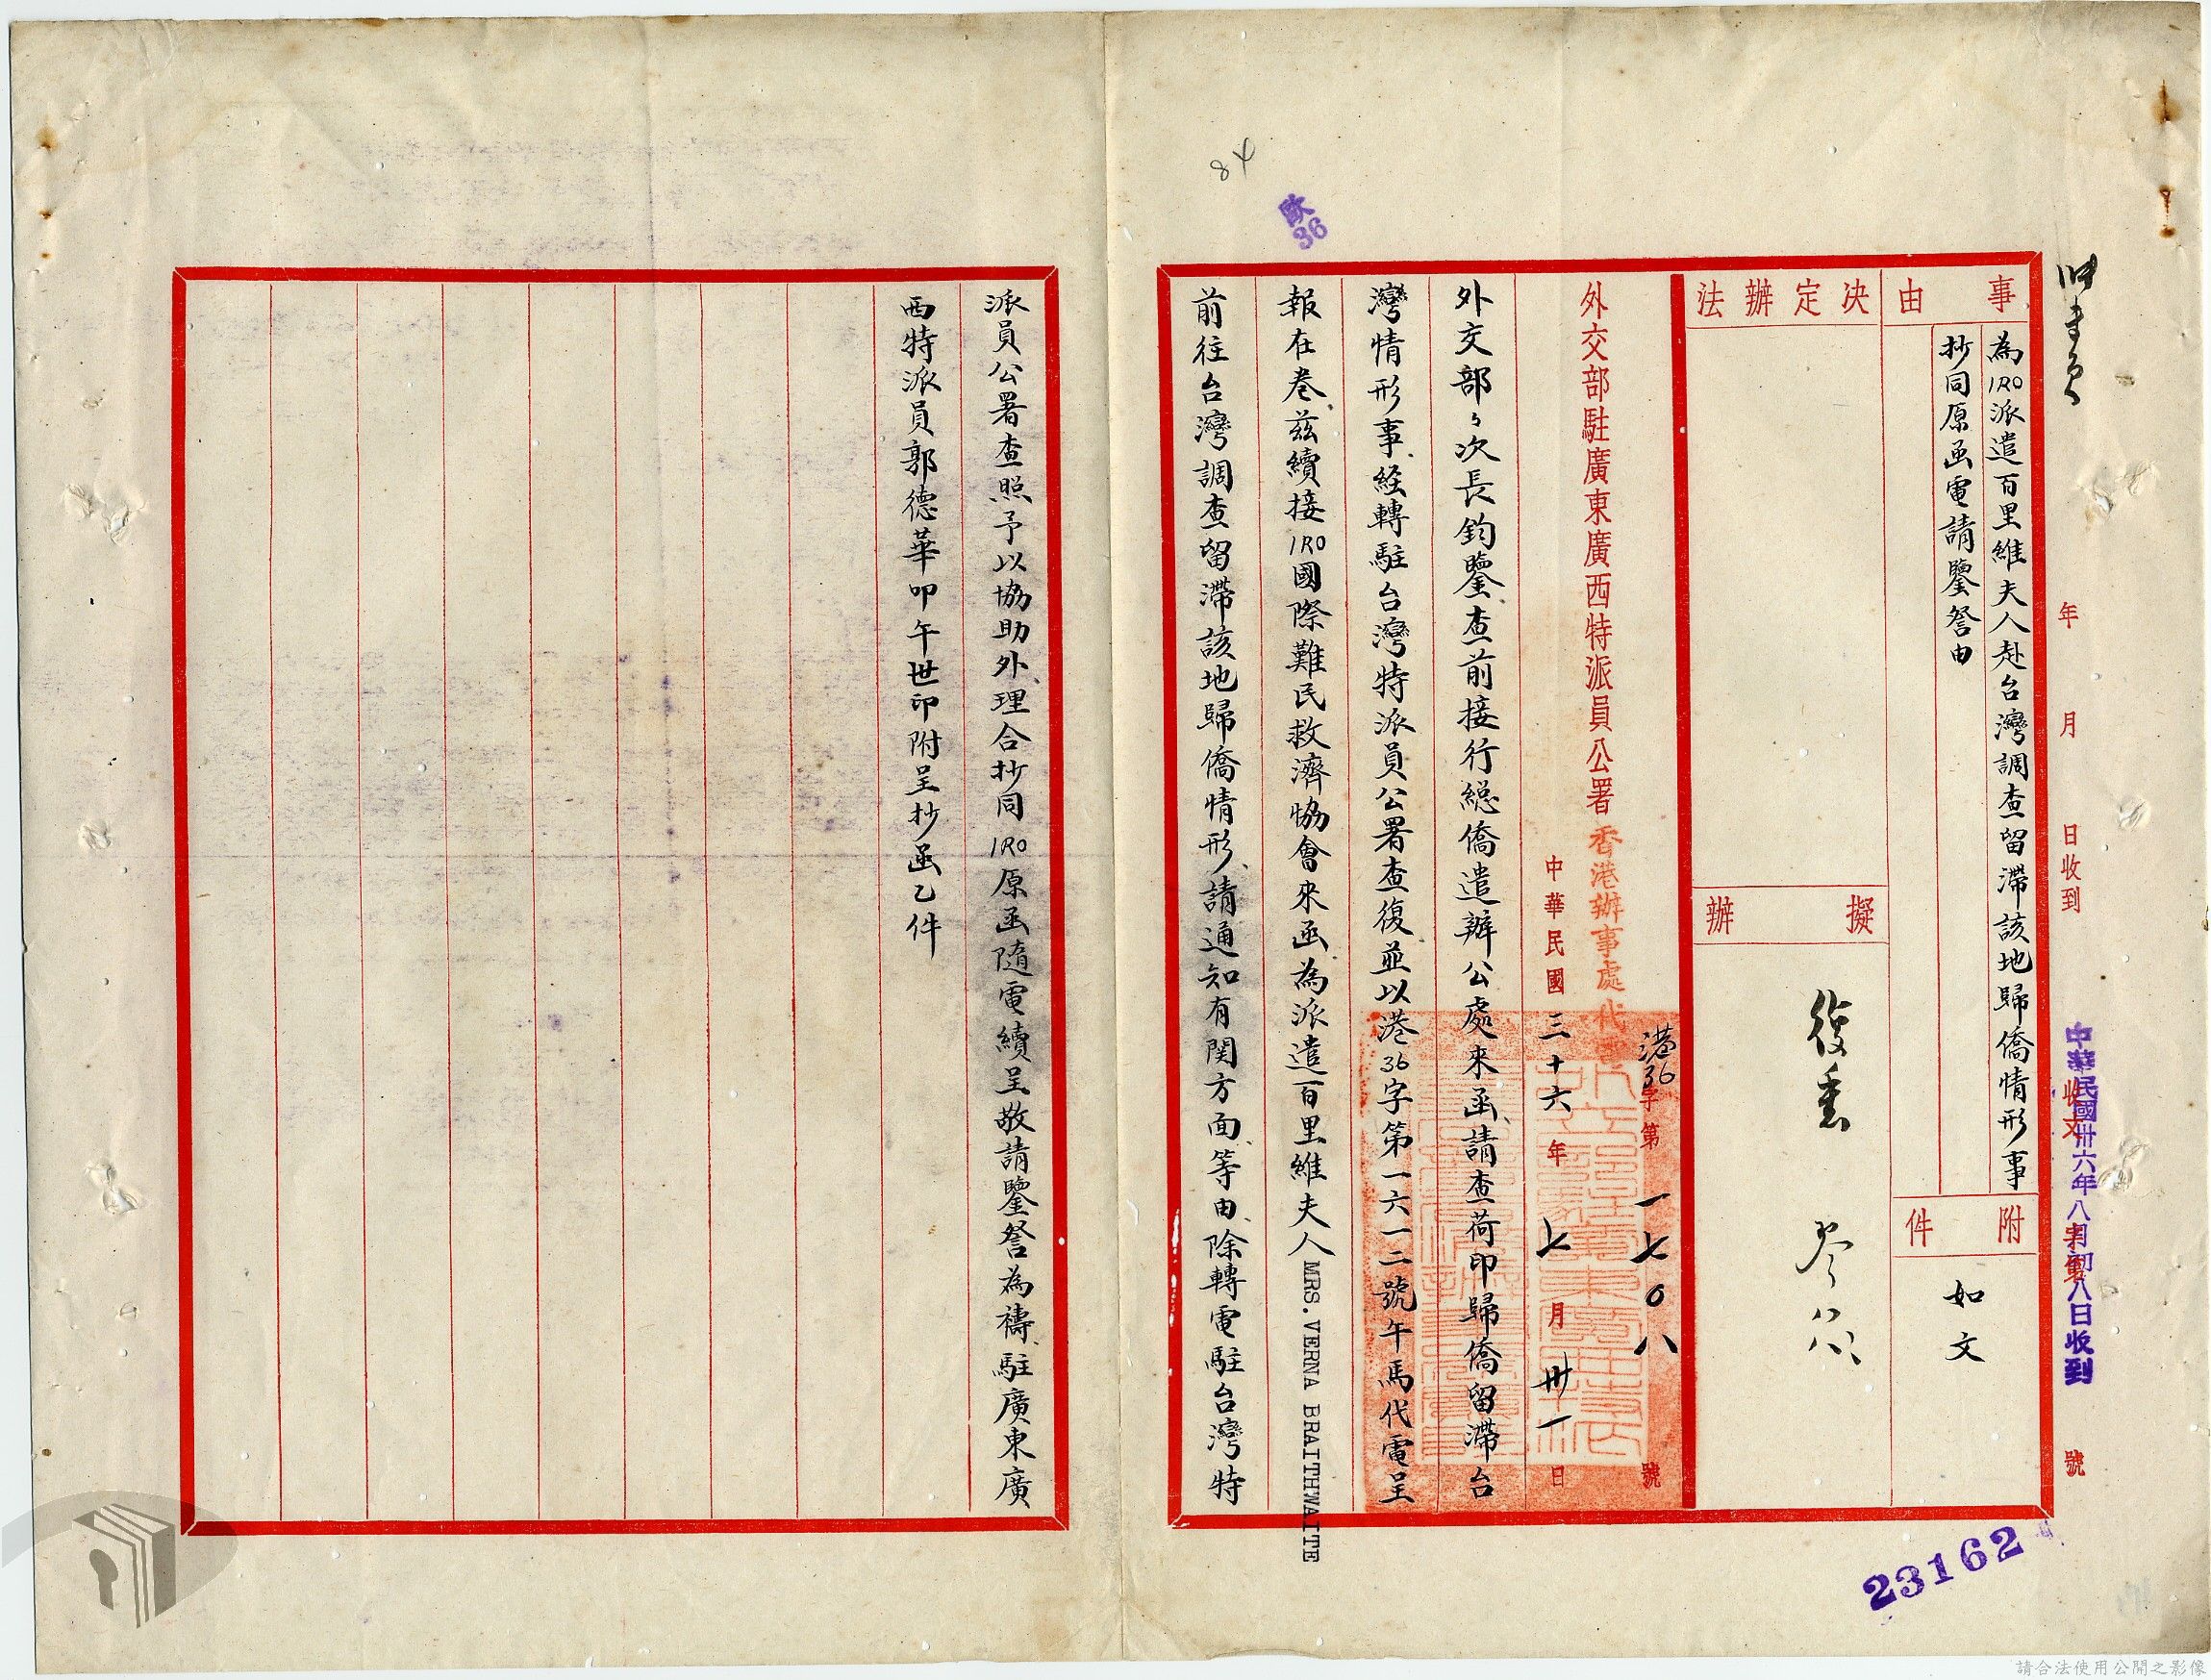 年 月 日收到
收文 字第 號
中華民國卅六年八月初八日收到
事由
為IRO派遣百里維夫人赴台灣調查留滯該地歸僑情形事
抄同原函電請鑒詧由
附件
如文
決定辦法
擬辦
外交部駐廣東廣西特派員公署香港辦事處代電
港36字第一七〇八號
中華民國三十六年七月卅一日
外交部、次長鈞鑒查前接行總僑遣辦公處來函、請查荷印歸僑留滯台
灣情形事、經轉駐台灣特派員公署查復並以港36字第一六一二號午馬代電呈
報在卷、茲續接IRO國際難民救濟協會來函、為派遣百里維夫人MRS. VERNA BRAITHWAITE
前往台灣調查留滯該地歸僑情形、請通知有関方面、等由、除轉電駐台灣特
派員公署查照予以協助外、理合抄同IRO原函隨電續呈敬請鑒詧為禱、駐廣東廣
西特派員郭德華叩午世印附呈抄函乙件
84
歐36
23162
請合法使用公開之影像